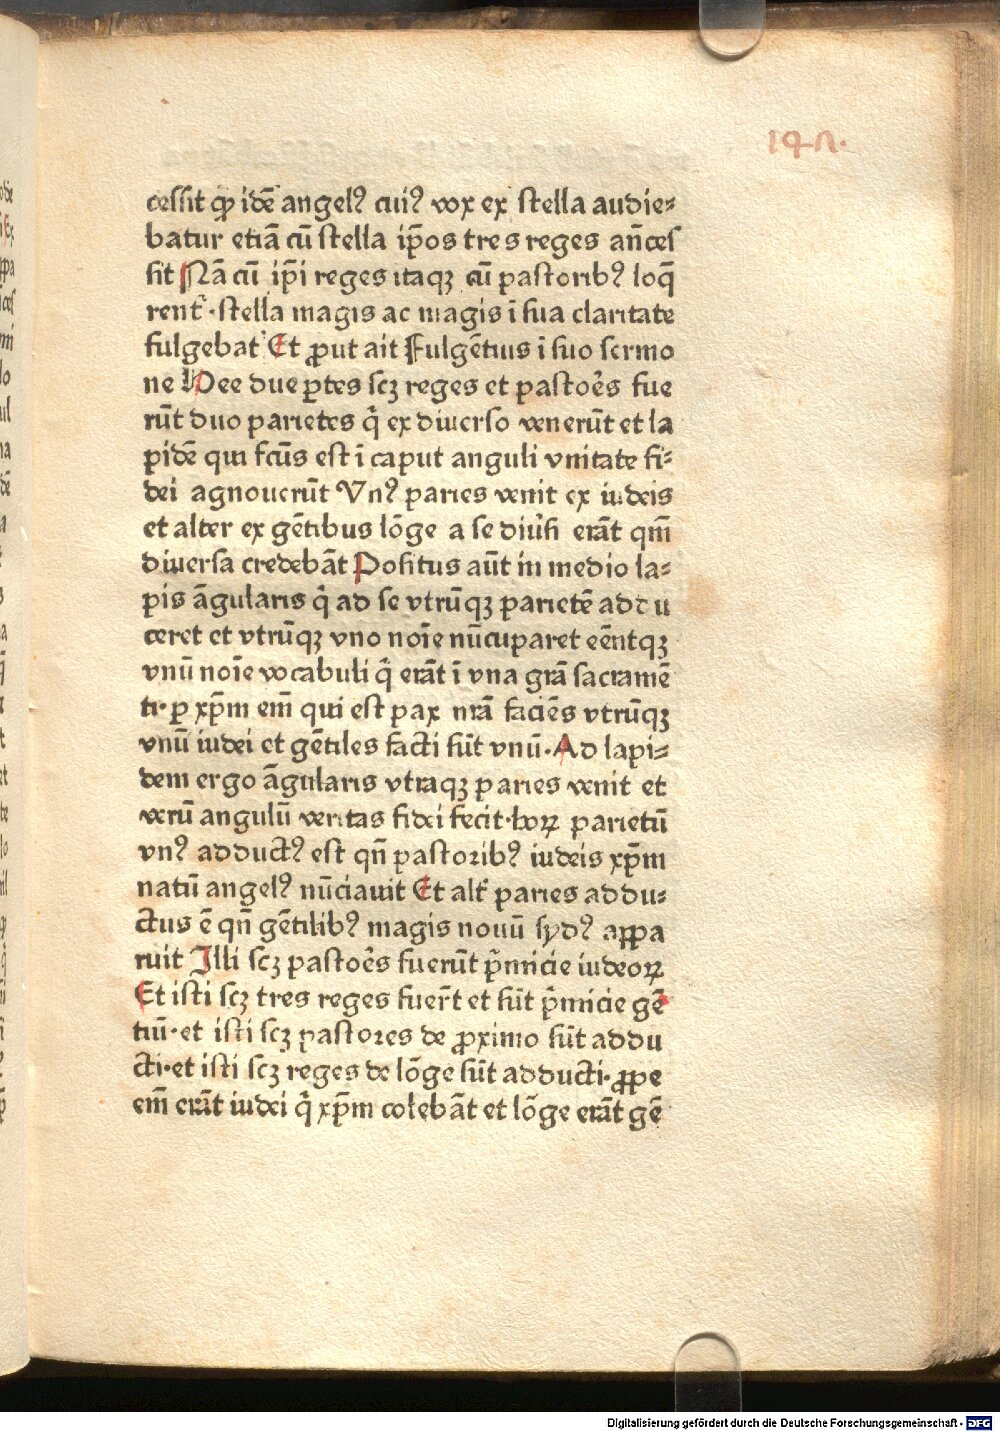 147.
cessit ꝙ idē angelꝰ cuiꝰ vox ex stella audie⸗
batur etiā cū stella ip̄os tres reges an̄ces
sit Nā cū ip̄i reges itaqꝫ cū pastoribꝰ loq̄
rent᷑ ·stella magis ac magis ī sua claritate
fulgebat Et ꝓut ait Fulgētius ī suo sermo
ne Hee due ꝑtes scꝫ reges et pastoēs fue
rūt duo parietes q̇ ex diuerso venerūt et la
pidē qui fcūs est ī caput anguli vnitate fi⸗
dei agnouerūt Vnꝰ paries venit ex iudeis
et alter ex gētibus lōge a se diu̇si erāt qm̄
diuersa credebāt Positus aūt in medio la⸗
pis āgularis q̇ ad se vtrūqꝫ parietē addu
ceret et vtrūqꝫ vno noīe nūcuparet eēntqꝫ
vnū noīe vocabuli q̇ erāt ī vna grā sacramē
ti· ꝑ xp̄m em̄ qui est pax nrā faciēs vtrūqꝫ
vnū iudei et gētiles facti sūt vnū· Ad lapi⸗
dem ergo āgularis vtraqꝫ paries venit et
verū angulū veritas fidei fecit· hoꝝ parietū
vnꝰ adductꝰ est qn̄ pastoribꝰ iudeis xp̄m
natū angelꝰ nūciauit Et alt᷑ paries addu⸗
ctus ē qn̄ gētilibꝰ magis nouū sydꝰ appa
ruit Illi scꝫ pastoēs fuerūt p̄micie iudeoꝝ
Et isti scꝫ tres reges fuer̄t et sūt p̄micie gē
tiū· et isti scꝫ pastores de ꝓximo sūt addu
cti· et isti scꝫ reges de lōge sūt adducti· ꝓpe
em̄ erāt iudei q̇ xp̄m colebāt et lōge erāt gē
Digitalisierung gefördert durch die Deutsche Forschungsgemeinschaft - DFG